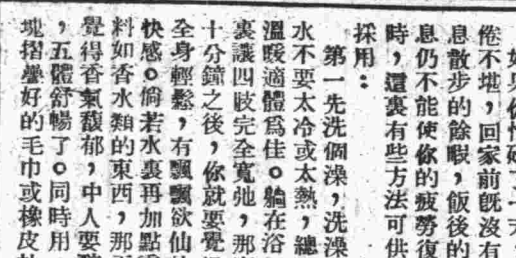 如果你
倦不堪，回家前既沒有
息散步的餘暇，飯後的
息仍不能使你的疲勞復
時，這裏有些方法可供
採用：
第一先洗個澡，洗澡
水不要太冷或太熱，總
溫暖適體爲佳。躺在浴
裏讓四肢完全寬弛，那
十分鐘之後，你就要覺
全身輕鬆，有飄飄欲仙
快感。倘若水裏再加點
料如香水類的東西，那
覺得香氣馥郁，中人要
，五體舒暢了。同時用
塊摺疊好的毛巾或橡皮